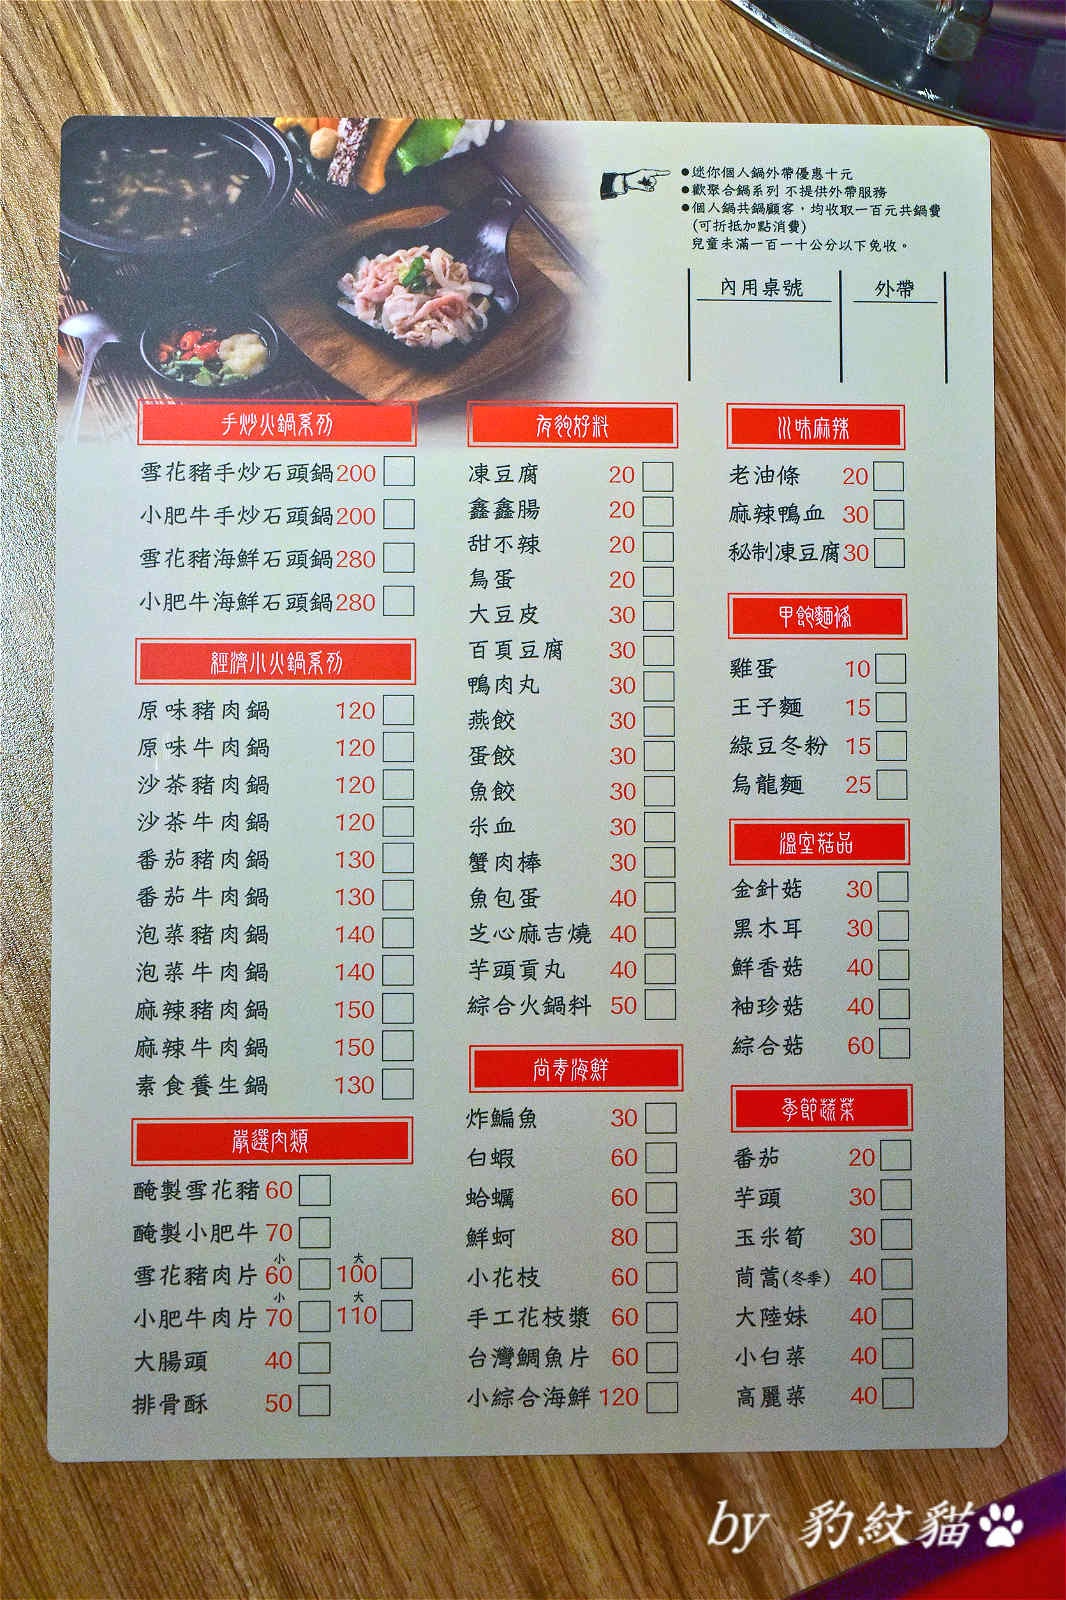 ●迷你個人鍋外帶優惠十元
●歡聚合鍋系列 不提供外帶服務
●個人鍋共鍋顧客，均收取一百元共鍋費
(可折抵加點消費)
兒童未滿一百一十公分以下免收。
內用桌號 外帶
手炒火鍋系列
雪花豬手炒石頭鍋200
小肥牛手炒石頭鍋200
雪花豬海鮮石頭鍋280
小肥牛海鮮石頭鍋280
經濟小火鍋系列
原味豬肉鍋 120
原味牛肉鍋 120
沙茶豬肉鍋 120
沙茶牛肉鍋 120
番茄豬肉鍋 130
番茄牛肉鍋 130
泡菜豬肉鍋 140
泡菜牛肉鍋 140
麻辣豬肉鍋 150
麻辣牛肉鍋 150
素食養生鍋 130
嚴選肉類
醃製雪花豬 60
醃製小肥牛 70
雪花豬肉片 小 60 大 100
小肥牛肉片 小 70 大 110
大腸頭 40
排骨酥 50
有夠好料
凍豆腐 20
鑫鑫腸 20
甜不辣 20
鳥蛋 20
大豆皮 30
百頁豆腐 30
鴨肉丸 30
燕餃 30
蛋餃 30
魚餃 30
米血 30
蟹肉棒 30
魚包蛋 40
芝心麻吉燒 40
芋頭貢丸 40
綜合火鍋料 50
尚青海鮮
炸鯿魚 30
白蝦 60
蛤蠣 60
鮮蚵 80
小花枝 60
手工花枝漿 60
台灣鯛魚片 60
小綜合海鮮 120
川味麻辣
老油條 20
麻辣鴨血 30
秘制凍豆腐30
甲飽麵條
雞蛋 10
王子麵 15
綠豆冬粉 15
烏龍麵 25
溫室菇品
金針菇 30
黑木耳 30
鮮香菇 40
袖珍菇 40
綜合菇 60
季節蔬菜
番茄 20
芋頭 30
玉米筍 30
茼蒿(冬季) 40
大陸妹 40
小白菜 40
高麗菜 40
by 豹紋貓